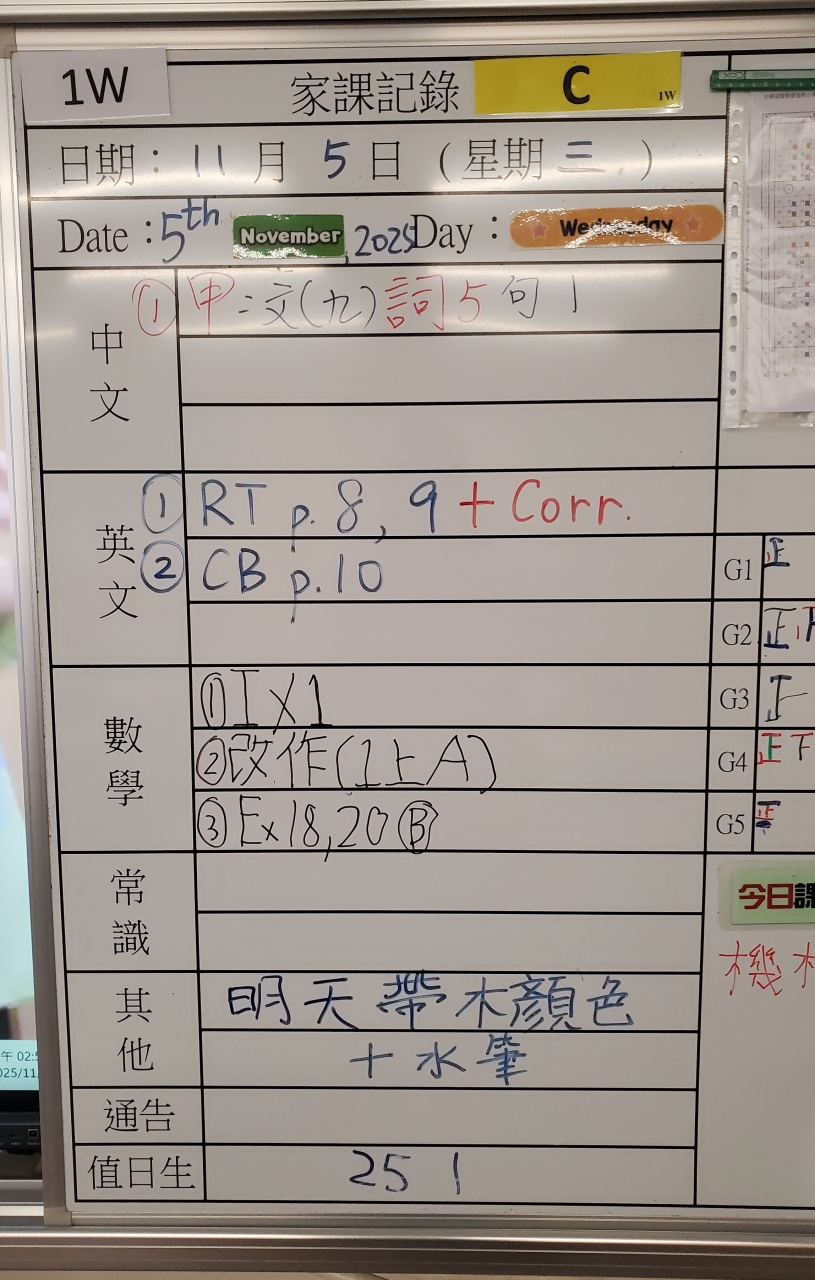 1W 家課記錄 C 1W
日期：11月5日（星期三）
Date：5th November, 2025 Day：Wednesday
中文
① 甲：文(九)詞5句1
英文
① RT p.8, 9 + Corr.
② CB p.10
數學
① I×1
② 改作(1上A)
③ Ex18,20 Ⓑ
常識
其他
明天帶木顏色
+水筆
通告
值日生 25 1
G1 正
G2 正
G3
G4 正下
G5 正
今日課
機